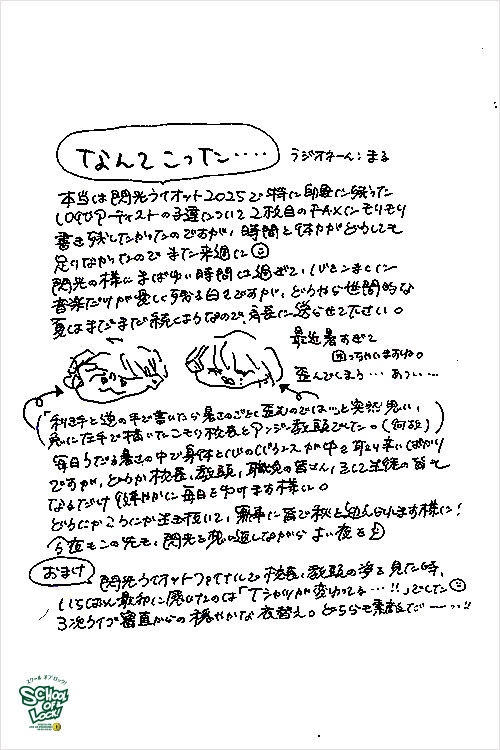 なんてこったい・・・・
ラジオネーム：まる
本当は閃光ライオット2025で特に印象に残った
10組のアーティストの子達について2枚目のFAXにモリモリ
書き残したかったのですが、時間と体力がどうしても
足りなかったのでまた来週に
閃光の様にまばゆい時間は過ぎて、いまこに
音楽だけが愛しく残る白々ですが、どうやら世間的な
夏はまだまだ続くようなので、身長に送らせて下さい。
最近暑すぎて
困っちゃいますね。
歪んでしまう…あつい…
「利き手と逆の手で書いたら暑さのごとく歪むのでは…」と突然思い、
急いで左手で描いたこもり校長とアンジー教頭でした。（何故）
毎日うだる暑さの中で身体と心のバランスが中々取り辛いばかり
ですが、どうか校長、教頭、職員の皆さん、そして生徒の皆も
なるだけ健やかに毎日をゆけます様に。
どうにかこうにか生き抜いて、無事に皆で秋を迎えられます様に！
今夜もこの先も、閃光を想い返しながらよい夜を
おまけ
閃光ライオットファイナルで校長、教頭の姿を見た時、
いちばん最初に感じたのは「Tシャツが変わってる…!!」でした
3次ライブ審査からの穏やかな衣替え。どちらも素敵だーーっ!!
スクール オブ ロック!
SCHOOL
OF
LOCK!